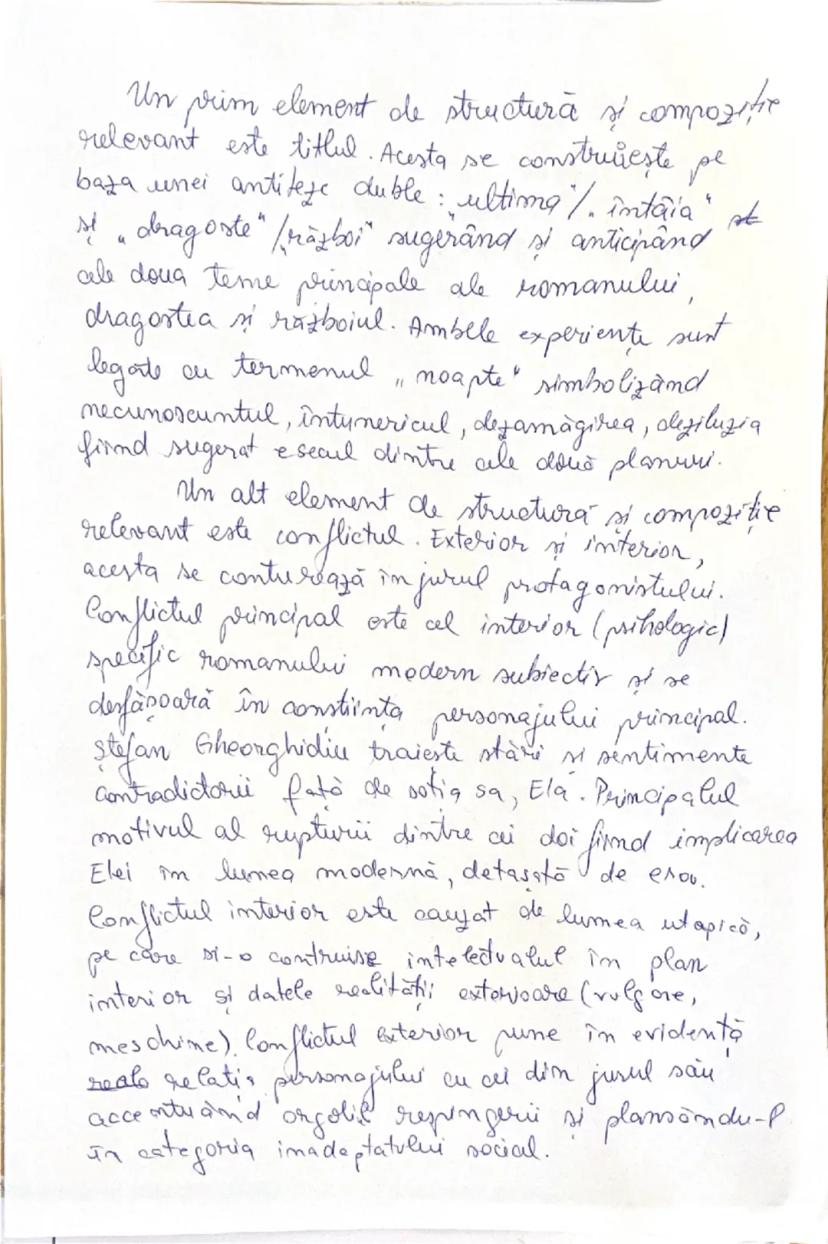 Un prim element de structură și compoziție
relevant este titlul. Acesta se construiește pe
baza unei antiteze duble: „ultima"/„întâia"
și „dragoste"/„război" sugerând și anticipând
cele doua teme principale ale romanului,
dragostea și războiul. Ambele experiențe sunt
legate cu termenul „noapte" simbolizând
necunoscuntul, întunericul, dezamăgirea, deziluzia
fiind sugerat esecul dintre cele două planuri.
Un alt element de structură și compoziție
relevant este conflictul. Exterior și interior,
acesta se conturează în jurul protagonistului.
Conflictul principal este cel interior (psihologic)
specific romanului modern subiectiv și se
desfășoară în constiința personajului principal.
Ștefan Gheorghidiu traiește stări și sentimente
contradictorii față de soția sa, Ela. Principalul
motivul al rupturii dintre cei doi fiind implicarea
Elei în lumea modernă, detasată de erou.
Conflictul interior este cauzat de lumea utopică,
pe care si-o contruise intelectualul în plan
interior și datele realității exterioare (vulgare,
meschine). Conflictul exterior pune în evidență
relația personajului cu cei din jurul său
accentuând orgoliul respingerii și plansându-l
în categoria inadaptatului social.